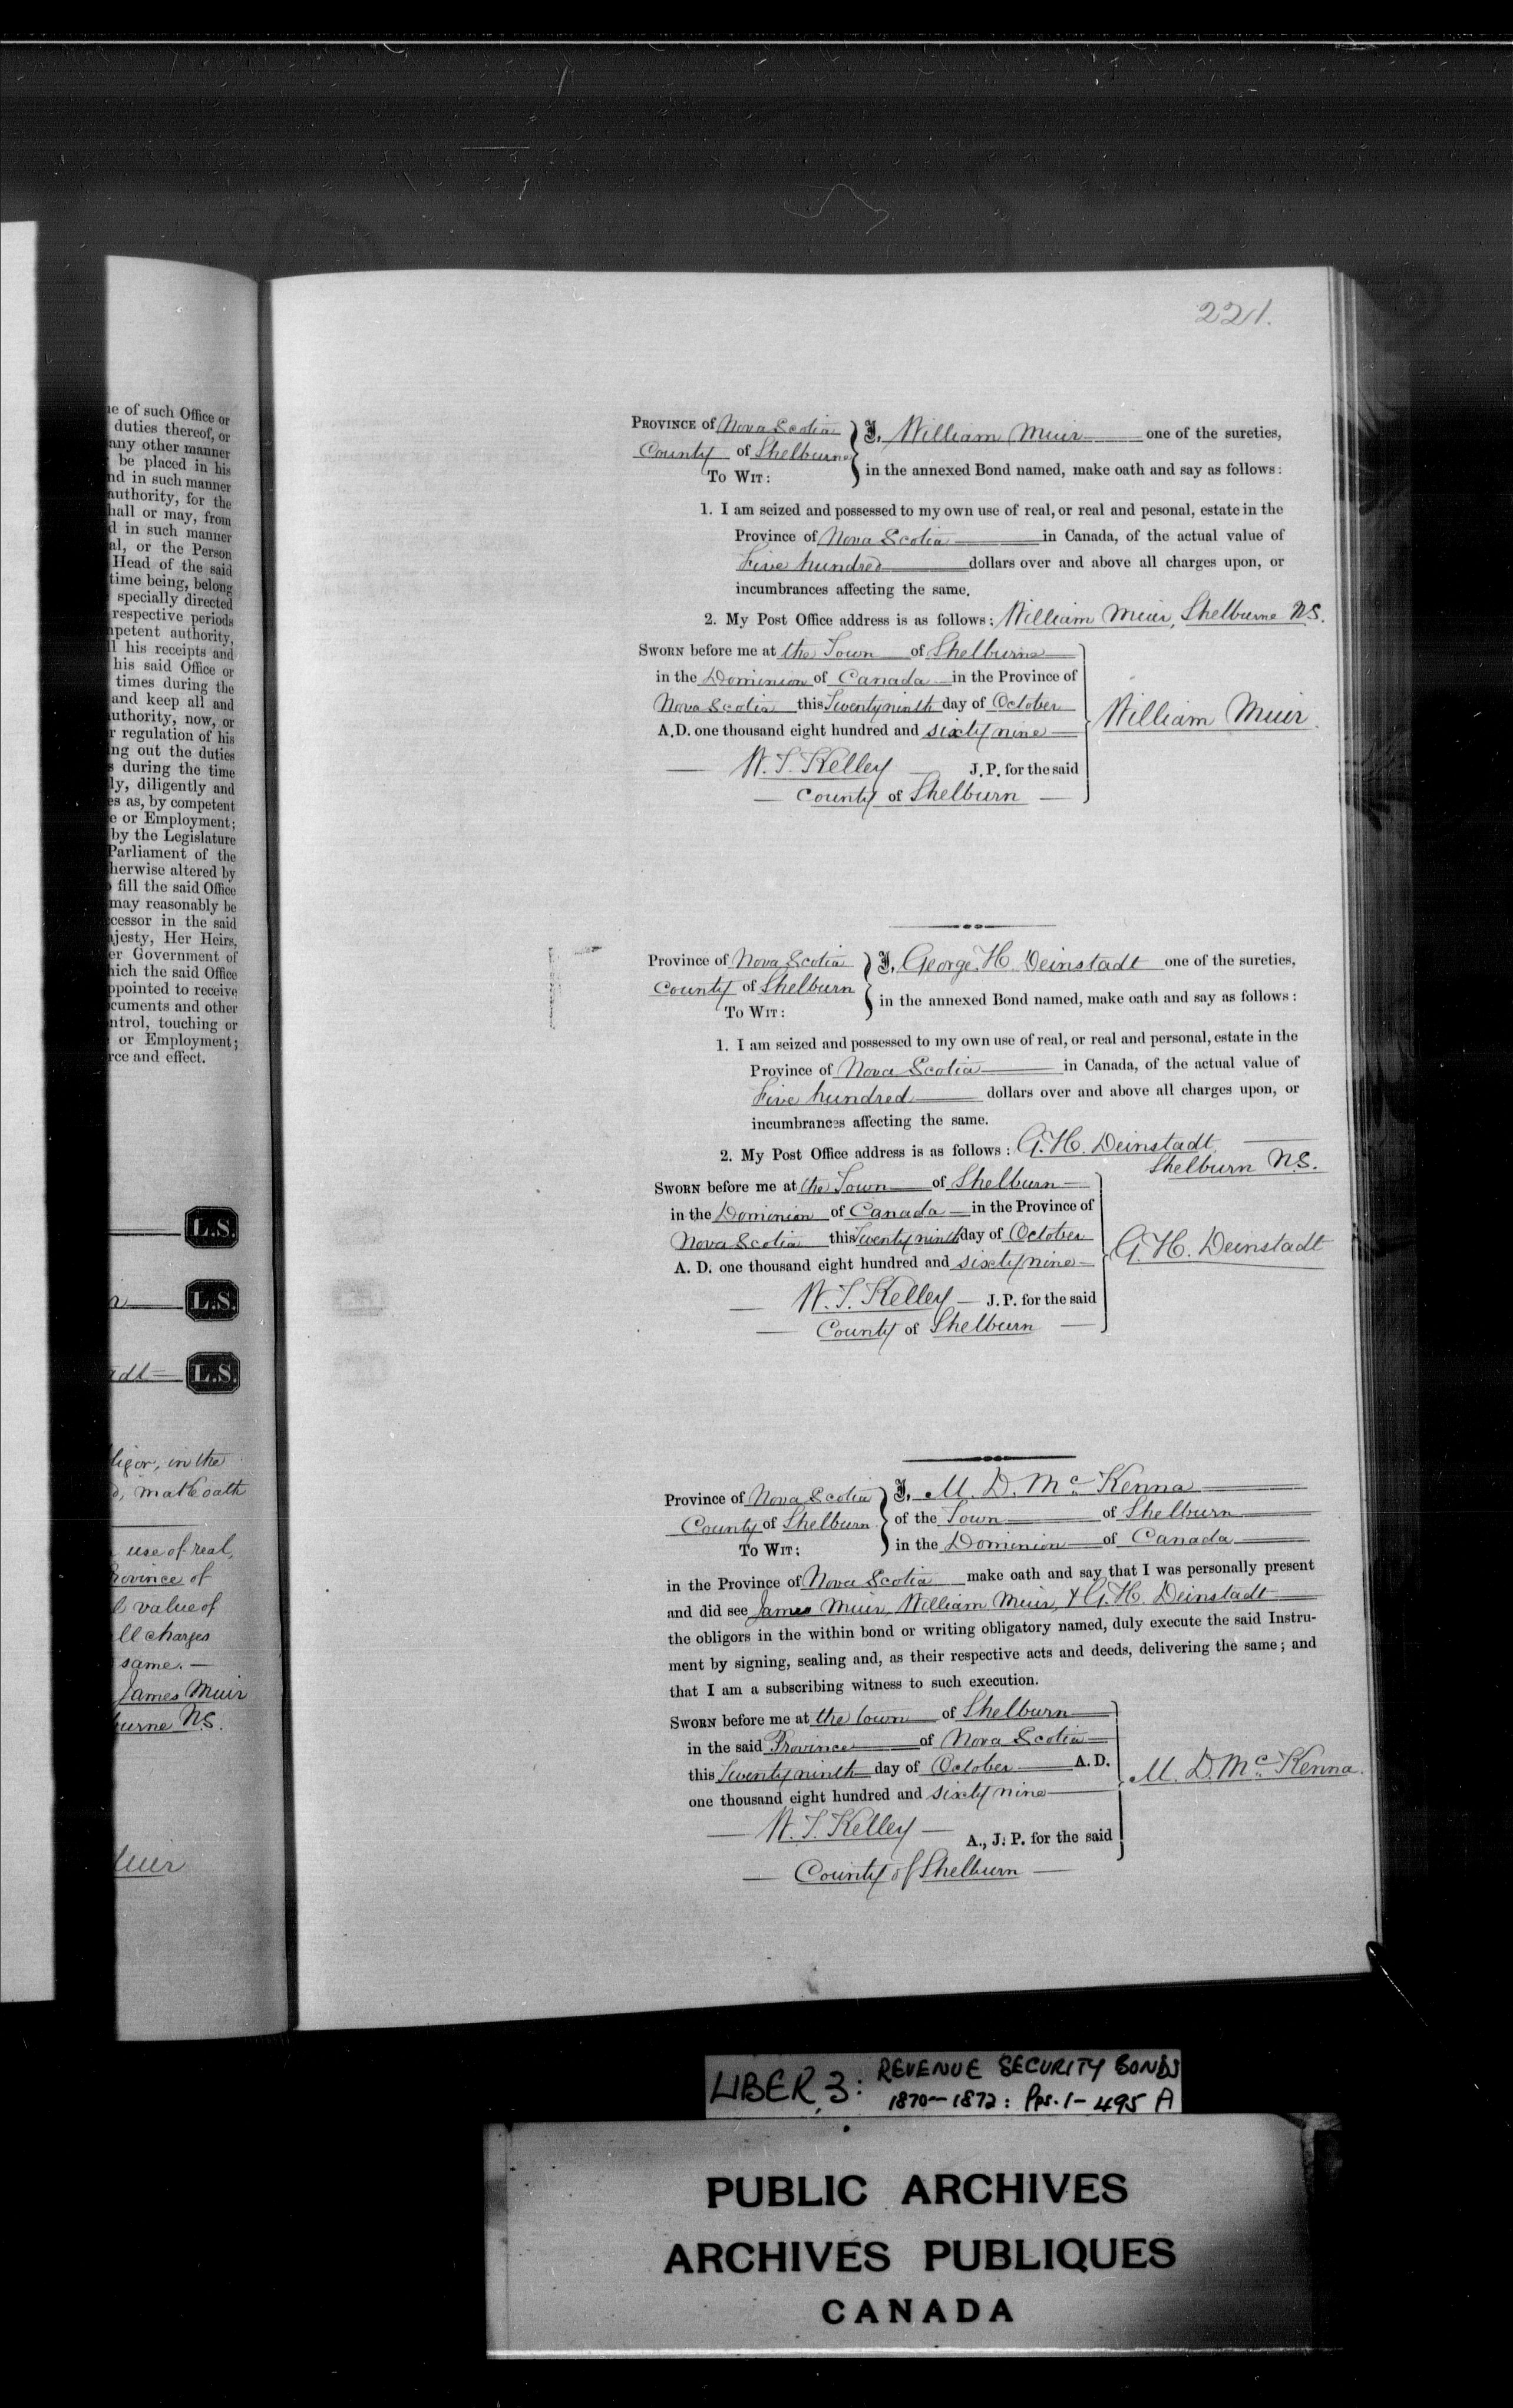 ne of such Office or
duties thereof, or
any other manner
be placed in his
nd in such manner
authority, for the
hall or may, from
d in such manner
al, or the Person
Head of the said
time being, belong
specially directed
respective periods
npetent authority,
ll his receipts and
his said Office or
times during the
and keep all and
uthority, now, or
r regulation of his
ing out the duties
s during the time
ly, diligently and
es as, by competent
e or Employment;
by the Legislature
Parliament of the
herwise altered by
fill the said Office
may reasonably be
ccessor in the said
ajesty, Her Heirs,
er Government of
hich the said Office
ppointed to receive
cuments and other
ntrol, touching or
or Employment;
rce and effect.
L.S.
n L.S.
adt L.S.
ligor, in the
d, make oath
use of real,
rovince of
l value of
ll charges
same. —
James Muir
burne N.S.
uir
221.
PROVINCE of Nova Scotia } I, William Muir one of the sureties,
County of Shelburne
To WIT: in the annexed Bond named, make oath and say as follows:
1. I am seized and possessed to my own use of real, or real and pesonal, estate in the
Province of Nova Scotia in Canada, of the actual value of
Five hundred dollars over and above all charges upon, or
incumbrances affecting the same.
2. My Post Office address is as follows: William Muir, Shelburne N.S.
SWORN before me at the Town of Shelburne
in the Dominion of Canada in the Province of
Nova Scotia this Twenty ninth day of October
A.D. one thousand eight hundred and sixty nine
William Muir.
W. T. Kelley J. P. for the said
County of Shelburn
Province of Nova Scotia } I, George H. Deinstadt one of the sureties,
County of Shelburn
To WIT: in the annexed Bond named, make oath and say as follows:
1. I am seized and possessed to my own use of real, or real and personal, estate in the
Province of Nova Scotia in Canada, of the actual value of
Five hundred dollars over and above all charges upon, or
incumbrances affecting the same.
2. My Post Office address is as follows: G. H. Deinstadt
Shelburn N.S.
SWORN before me at the Town of Shelburn
in the Dominion of Canada in the Province of
Nova Scotia this Twenty ninth day of October
A. D. one thousand eight hundred and sixty nine
G. H. Deinstadt
W. T. Kelley J. P. for the said
County of Shelburn
Province of Nova Scotia } I, M. D. McKenna
County of Shelburn } of the Town of Shelburn
To WIT: in the Dominion of Canada
in the Province of Nova Scotia make oath and say that I was personally present
and did see James Muir, William Muir, & G. H. Deinstadt
the obligors in the within bond or writing obligatory named, duly execute the said Instru-
ment by signing, sealing and, as their respective acts and deeds, delivering the same; and
that I am a subscribing witness to such execution.
SWORN before me at the town of Shelburn
in the said Province of Nova Scotia
this Twenty ninth day of October A. D.
one thousand eight hundred and sixty nine
M. D. McKenna.
W. T. Kelley A., J. P. for the said
County of Shelburn
LIBER 3: REVENUE SECURITY BONDS
1870-1872: Pps. 1-495 A
PUBLIC ARCHIVES
ARCHIVES PUBLIQUES
CANADA